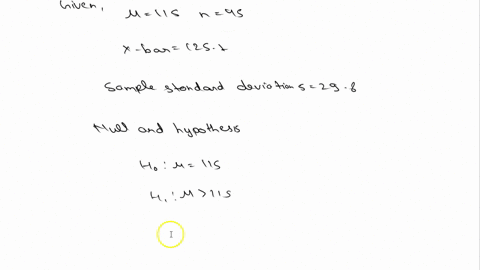 Given,
μ=115 n=45
x-bar=125.2
Sample standard deviation s=29.8
Null and hypothesis
H₀:μ=115
H₁:μ>115